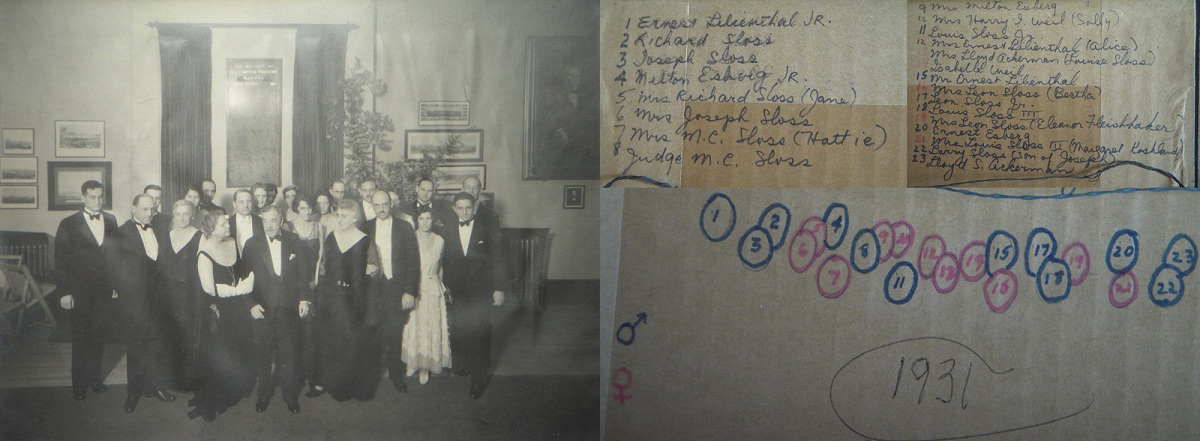 1 Ernest Lilienthal JR.
2 Richard Sloss
3 Joseph Sloss
4 Milton Esberg JR.
5 Mrs Richard Sloss (Jane)
6 Mrs Joseph Sloss
7 Mrs M.C. Sloss (Hattie)
8 Judge M.C. Sloss
9 Mrs Milton Esberg
10 Mrs Harry I. Weil (Sally)
11 Louis Sloss Jr.
12 Mrs Ernest Lilienthal (Alice)
Mrs Lloyd Ackerman (Louise Sloss)
Isabelle Weil
15 Mr Ernest Lilienthal
Mrs Leon Sloss (Bertha)
17 Leon Sloss Jr.
18 Louis Sloss III
19 Mrs Leon Sloss (Eleanor Fleishhaker
20 Ernest Esberg
21 Mrs Louis Sloss II (Margaret Koshland)
22 Larry Sloss (son of Joseph)
23 Lloyd S. Ackerman
1 2 3 4 6 7 8 11 12 15 16 17 18 19 20 21 22 23
♂
♀
1931